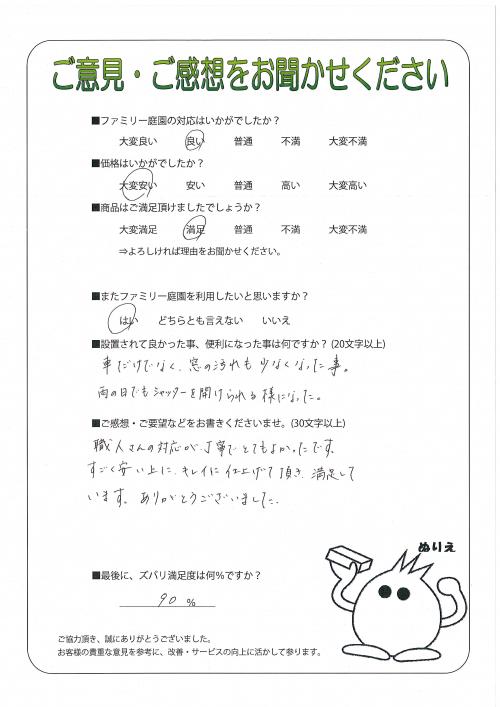 ご意見・ご感想をお聞かせください
■ファミリー庭園の対応はいかがでしたか？
大変良い 良い 普通 不満 大変不満
■価格はいかがでしたか？
大変安い 安い 普通 高い 大変高い
■商品はご満足頂けましたでしょうか？
大変満足 満足 普通 不満 大変不満
⇒よろしければ理由をお聞かせください。
■またファミリー庭園を利用したいと思いますか？
はい どちらとも言えない いいえ
■設置されて良かった事、便利になった事は何ですか？(20文字以上)
車だけでなく、窓の汚れも少なくなった事。
雨の日でもシャッターを開けられる様になった。
■ご感想・ご要望などをお書きくださいませ。(30文字以上)
職人さんの対応が丁寧でとてもよかったです。
すごく安い上に、キレイに仕上げて頂き、満足して
います。ありがとうございました。
ぬりえ
■最後に、ズバリ満足度は何％ですか？
90 %
ご協力頂き、誠にありがとうございました。
お客様の貴重な意見を参考に、改善・サービスの向上に活かして参ります。